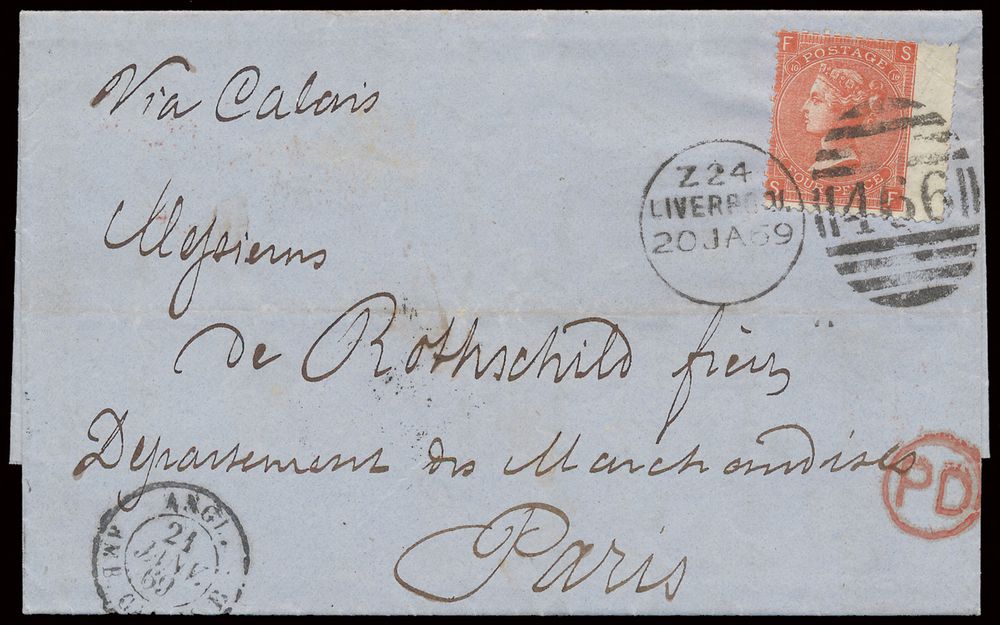 Via Calais
F S
POSTAGE
10 10
FOUR PENCE
S F
Z 24
LIVERPOOL
20 JA 69
466
Messieurs
de Rothschild frères
Département des Marchandises
Paris
PD
ANGL.
AMB.
21
JANV.
69